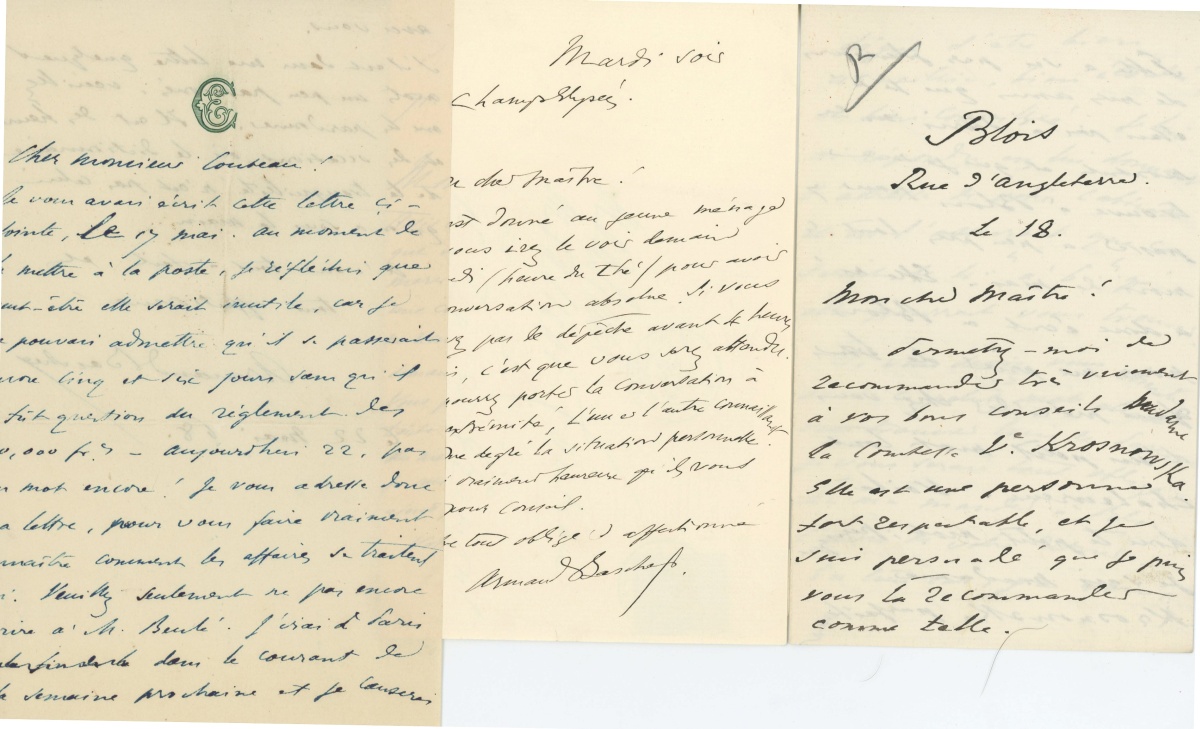 Cher Monsieur Couteau!
Je vous avais écrit cette lettre ci-
jointe, le 17 mai. au moment de
la mettre à la poste, je réfléchis que
peut-être elle serait inutile, car je
ne pouvais admettre qu'il se passerait
encore cinq et six jours sans qu'il
fût question du règlement des
0,000 frs – aujourdhui 22, pas
un mot encore! Je vous adresse donc
la lettre, pour vous faire vraiment
connaître comment les affaires se traitent
ici. Veuillez seulement ne pas encore
écrire à M. Beulé. J'irai à Paris
dans le courant de
la semaine prochaine et je causerai
Mardi soir
Champs Elysées.
mon cher Maître!
est donné au jeune ménage
vous irez le voir demain
di (heure du thé) pour avoir
conversation absolue. Si vous
pas le dépêche avant 4 heures
, c'est que vous serez attendu.
pourrez porter la conversation à
extrémité, l'un et l'autre connaissant
me degré la situation personnelle.
vraiment heureux qu'ils vous
pour conseil.
tout obligé & affectionné
Armand Baschet.
R/
Blois
Rue d'Angleterre.
Le 18.
Mon cher Maître!
Permettez-moi de
recommander très vivement
à vos bons conseils Madame
la Comtesse Ve Krosnowska.
Elle est une personne
fort respectable, et je
suis persuadé que je puis
vous la recommander
comme telle.